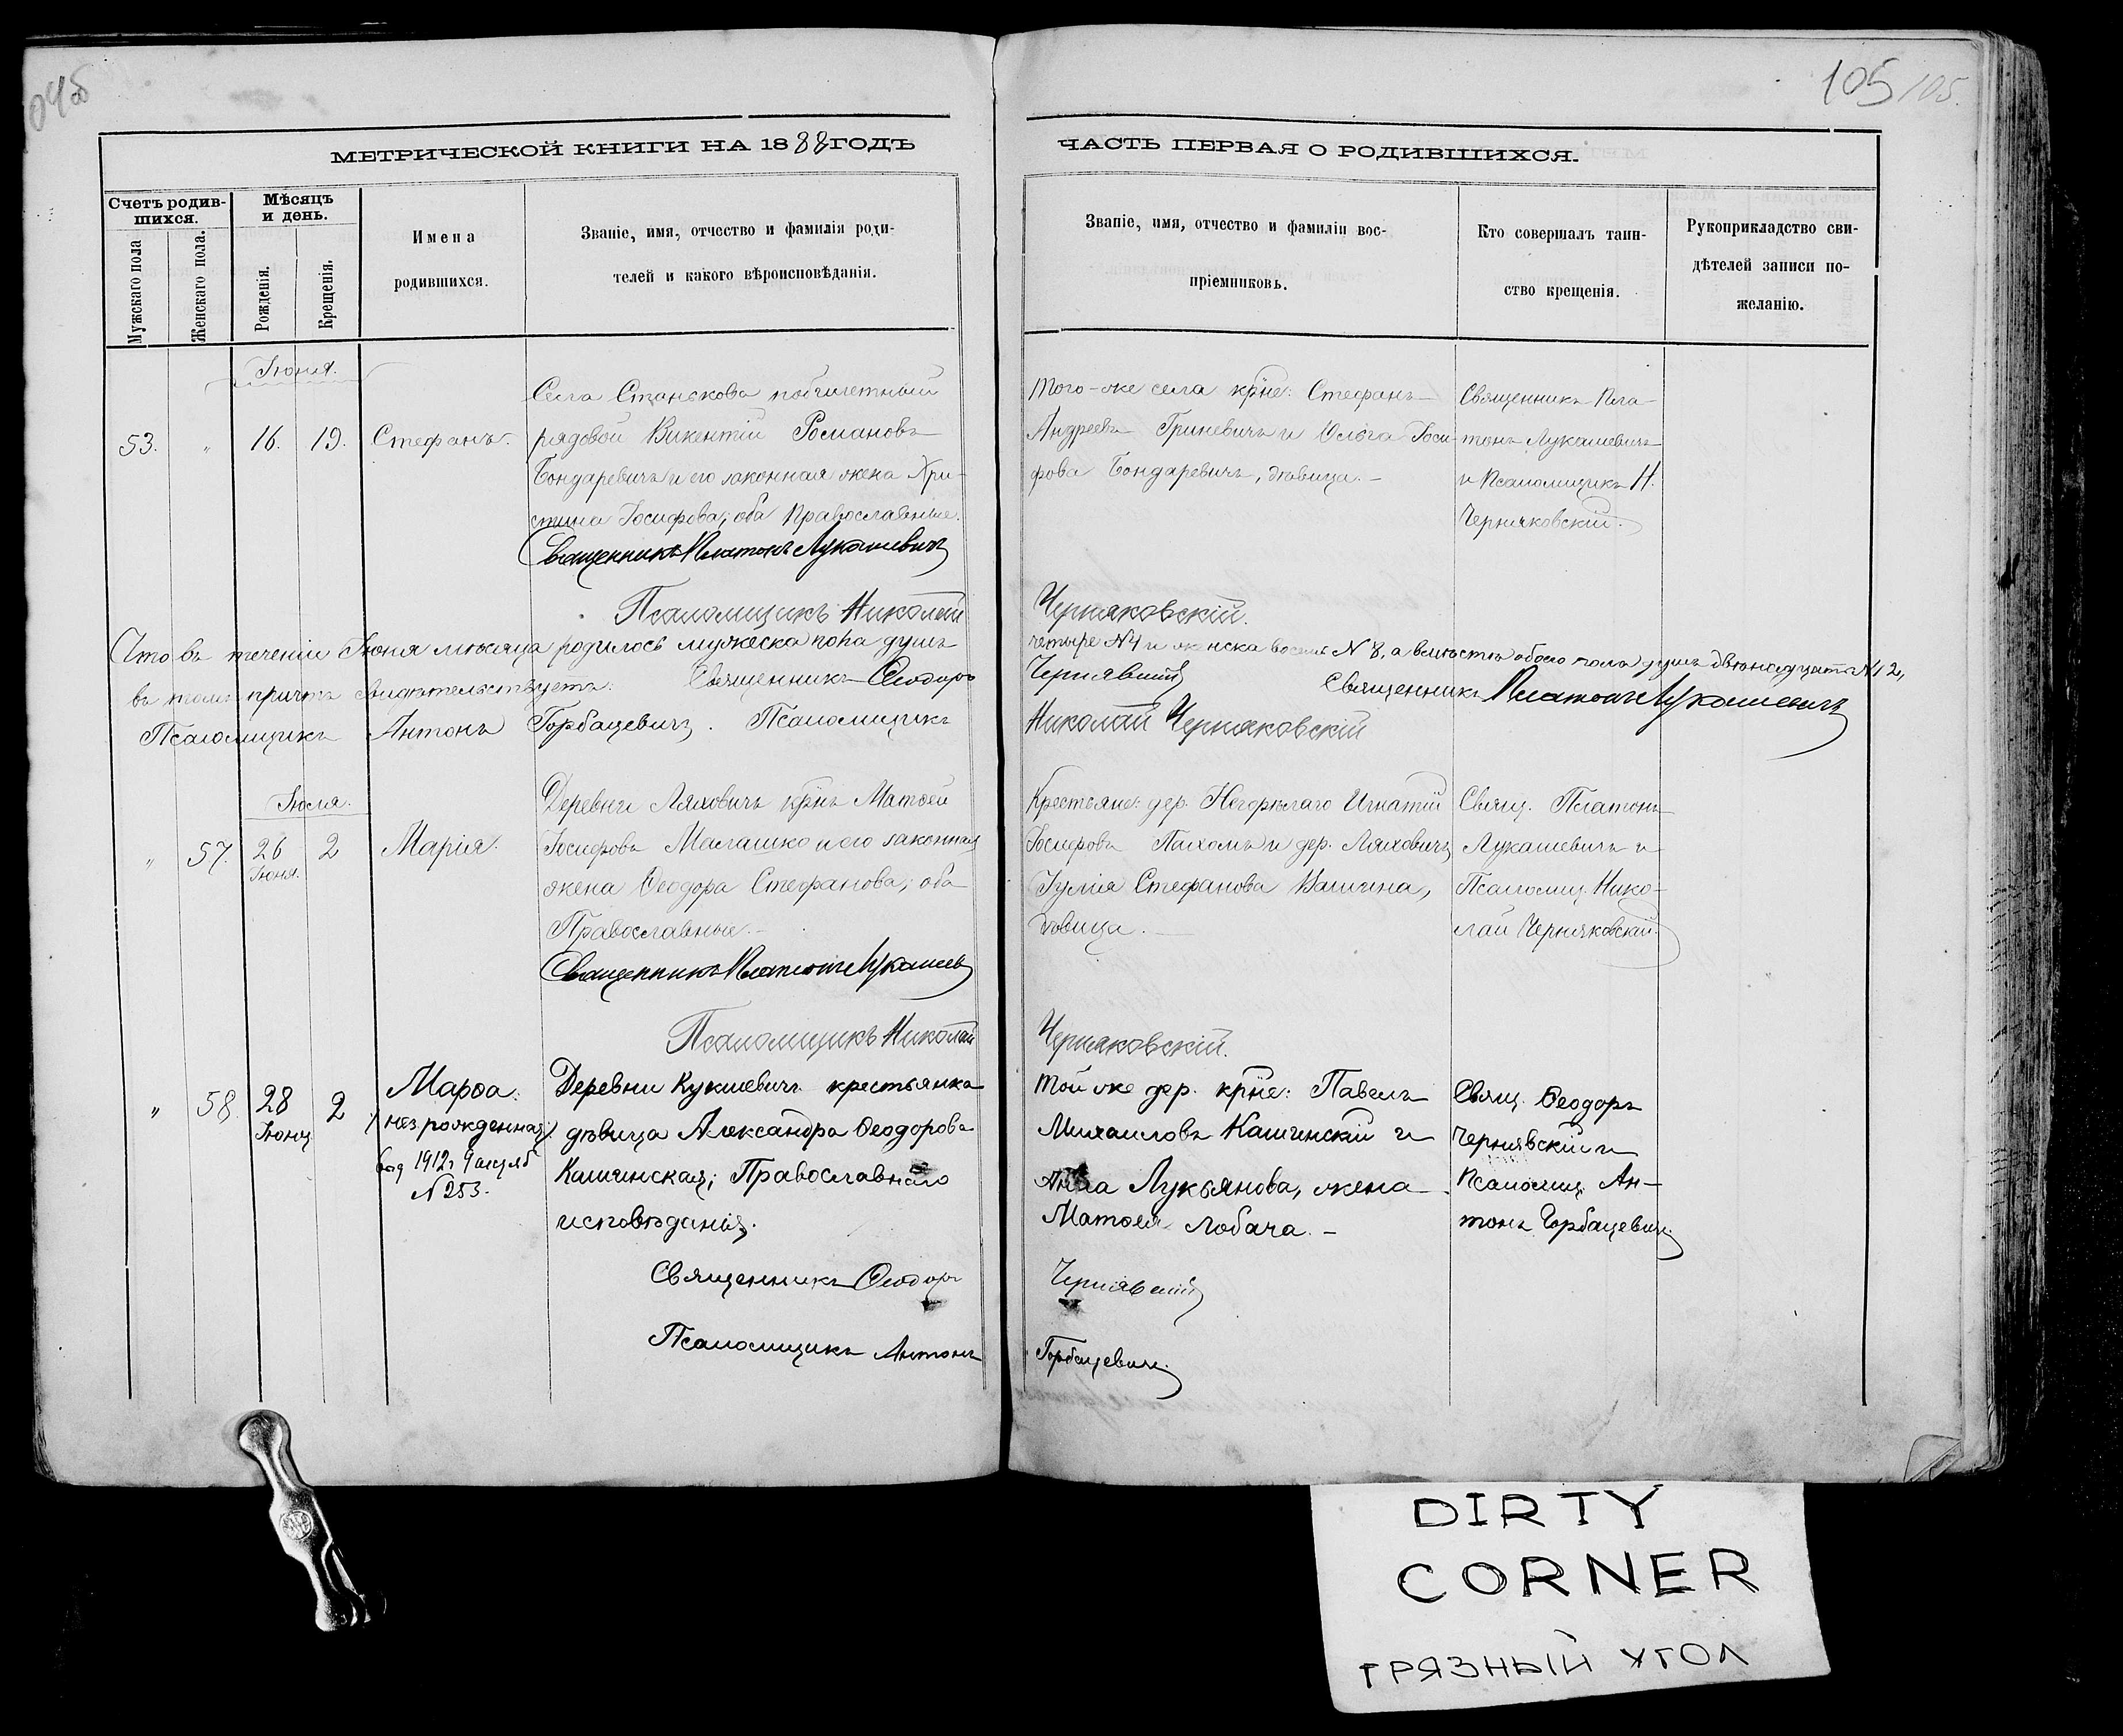 105 105.
МЕТРИЧЕСКОЙ КНИГИ НА 1888 ГОДЪ
ЧАСТЬ ПЕРВАЯ О РОДИВШИХСЯ.
Счетъ родив-
шихся.
Мужскаго пола
Женскаго пола.
Мѣсяцъ
и день.
Рожденія.
Крещенія.
Имена
родившихся.
Званіе, имя, отчество и фамилія роди-
телей и какого вѣроисповѣданія.
Званіе, имя, отчество и фамиліи вос-
пріемниковъ.
Кто совершалъ таин-
ство крещенія.
Рукоприкладство сви-
дѣтелей записи по-
желанію.
Іюня.
53. " 16. 19. Стефанъ.
Села Станькова
рядовой Викентій Романовъ
Бондаревичъ и его законная жена Хри-
стина Іосифова; оба Православные.
Священникъ Платонъ Лукашевичъ
Того-же села крне: Стефанъ
Андреевъ Гриневичъ и Ольга Іоси-
фова Бондаревичъ, дѣвица.
Священникъ Пла-
тонъ Лукашевичъ
и Псаломщикъ Н.
Черняковскій.
Псаломщикъ Николай Черняковскій.
Что въ теченіи Іюня мѣсяца родилось мужеска пола душъ четыре №4 и женска восемь №8, а вмѣстѣ обоего пола душъ двѣнадцать №12,
въ томъ причтъ свидѣтельствуетъ: Священникъ Ѳеодоръ Чернявскій Священникъ Платонъ Лукашевичъ
Псаломщикъ Антонъ Горбацевичъ. Псаломщикъ Николай Черняковскій
Іюля.
" 57. 26 Іюня. 2 Марія.
Деревни Ляховичъ крнъ Матѳей
Іосифовъ Малашко и его законная
жена Ѳеодора Стефанова; оба
Православные.
Священникъ Платонъ Лукашев
Крестьяне: дер. Негорѣлаго Игнатій
Іосифовъ Пахомъ и дер. Ляховичъ
Іулія Стефанова Вашина,
дѣвица.
Свящ. Платонъ
Лукашевичъ и
Псаломщ. Нико-
лай Черняковскій.
Псаломщикъ Николай Черняковскій.
" 58. 28 Іюня 2 Марѳа.
/нез. рожденная/.
1912 г 9
№ 253.
Деревни Кукшевичъ крестьянка
дѣвица Александра Ѳеодорова
Кашинская; Православнаго
исповѣданія.
Той же дер. крне: Павелъ
Михаиловъ Кашинскій и
Анна Лукьянова, жена
Матѳея Лобача.
Свящ. Ѳеодоръ
Чернявскій и
Псаломщ. Ан-
тонъ Горбацевичъ
Священникъ Ѳеодоръ Чернявскій
Псаломщикъ Антонъ Горбацевичъ.
DIRTY
CORNER
ГРЯЗНЫЙ УГОЛ